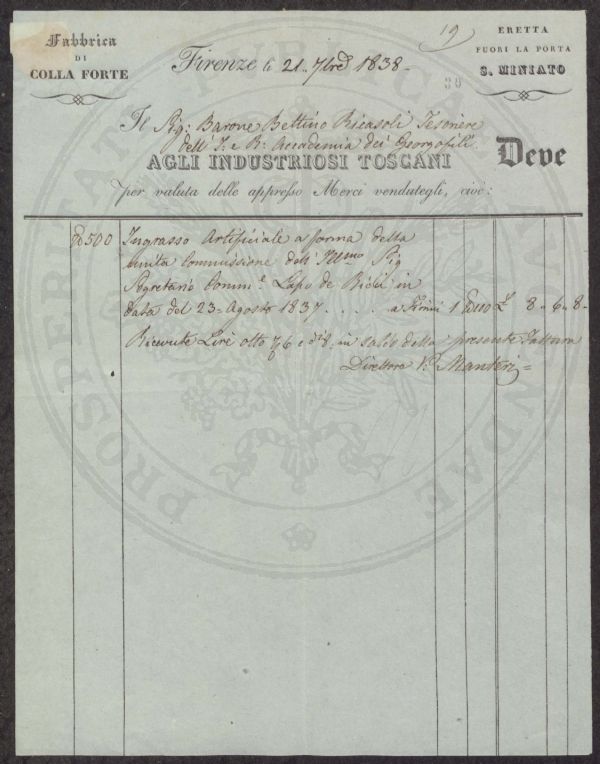 Fabbrica
DI
COLLA FORTE
19
ERETTA
FUORI LA PORTA
S. MINIATO
Firenze li 21. 7bre 1838.
30
Il Sig: Barone Bettino Ricasoli Tesoriere
dell' I: e R: Accademia dei Georgofili
AGLI INDUSTRIOSI TOSCANI Deve
per valuta delle appresso Merci vendutegli, cioè:
500 Ingrasso Artificiale a forma della
unita Commissione dell' Illmo Sig
Segretario Lapo de Ricci in
data del 23 Agosto 1837 . . . . a 1 £ 8 . 6 . 8
Ricevute Lire otto 6 e 8 in saldo della presente Fattura
Direttore
PROSPERITATI PUBLICAE AUGENDAE